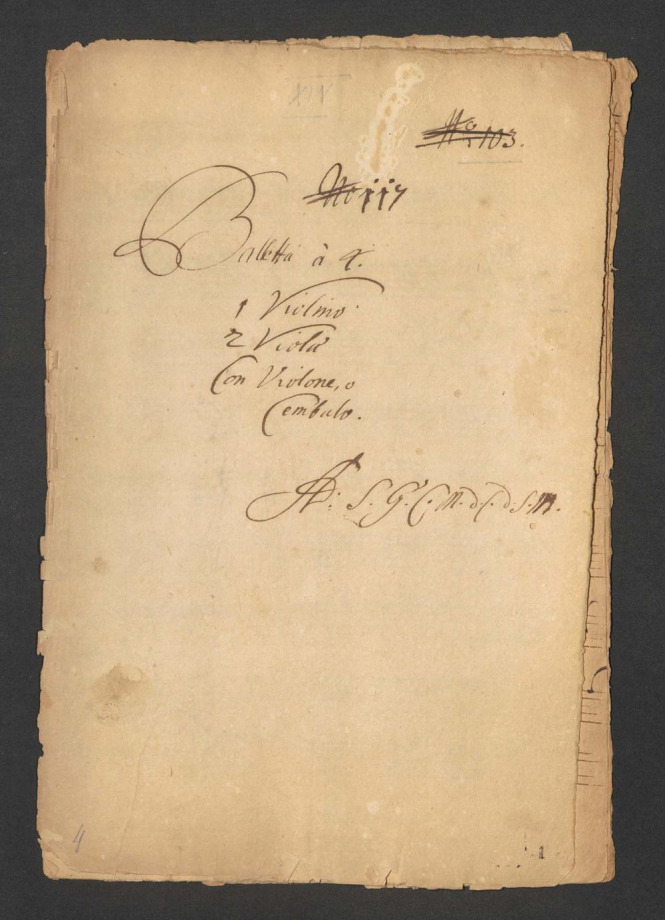 XIV
No. 103.
No 117
Balletti à 4.
1 Violino
2 Viole
Con Violone, o
Cembalo.
A: S. G. C. M. d. C. d. S. M.
4
1